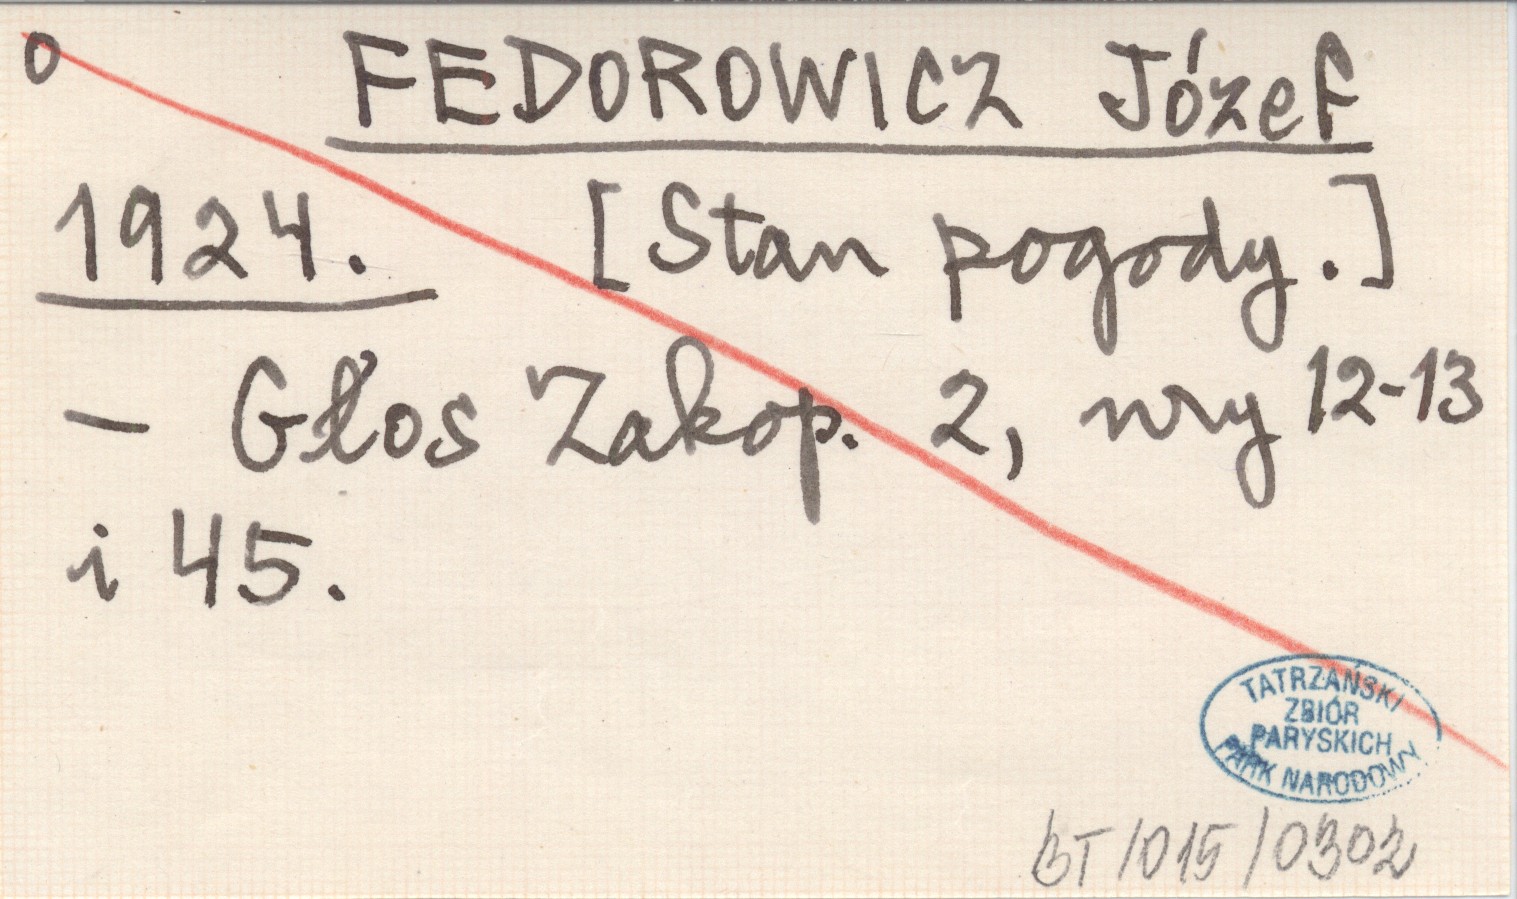 o FEDOROWICZ Józef
1924. [Stan pogody.]
- Głos Zakop. 2, nry 12-13
i 45.
TATRZAŃSKI
ZBIÓR
PARYSKICH
PARK NARODOWY
BT/015/0302